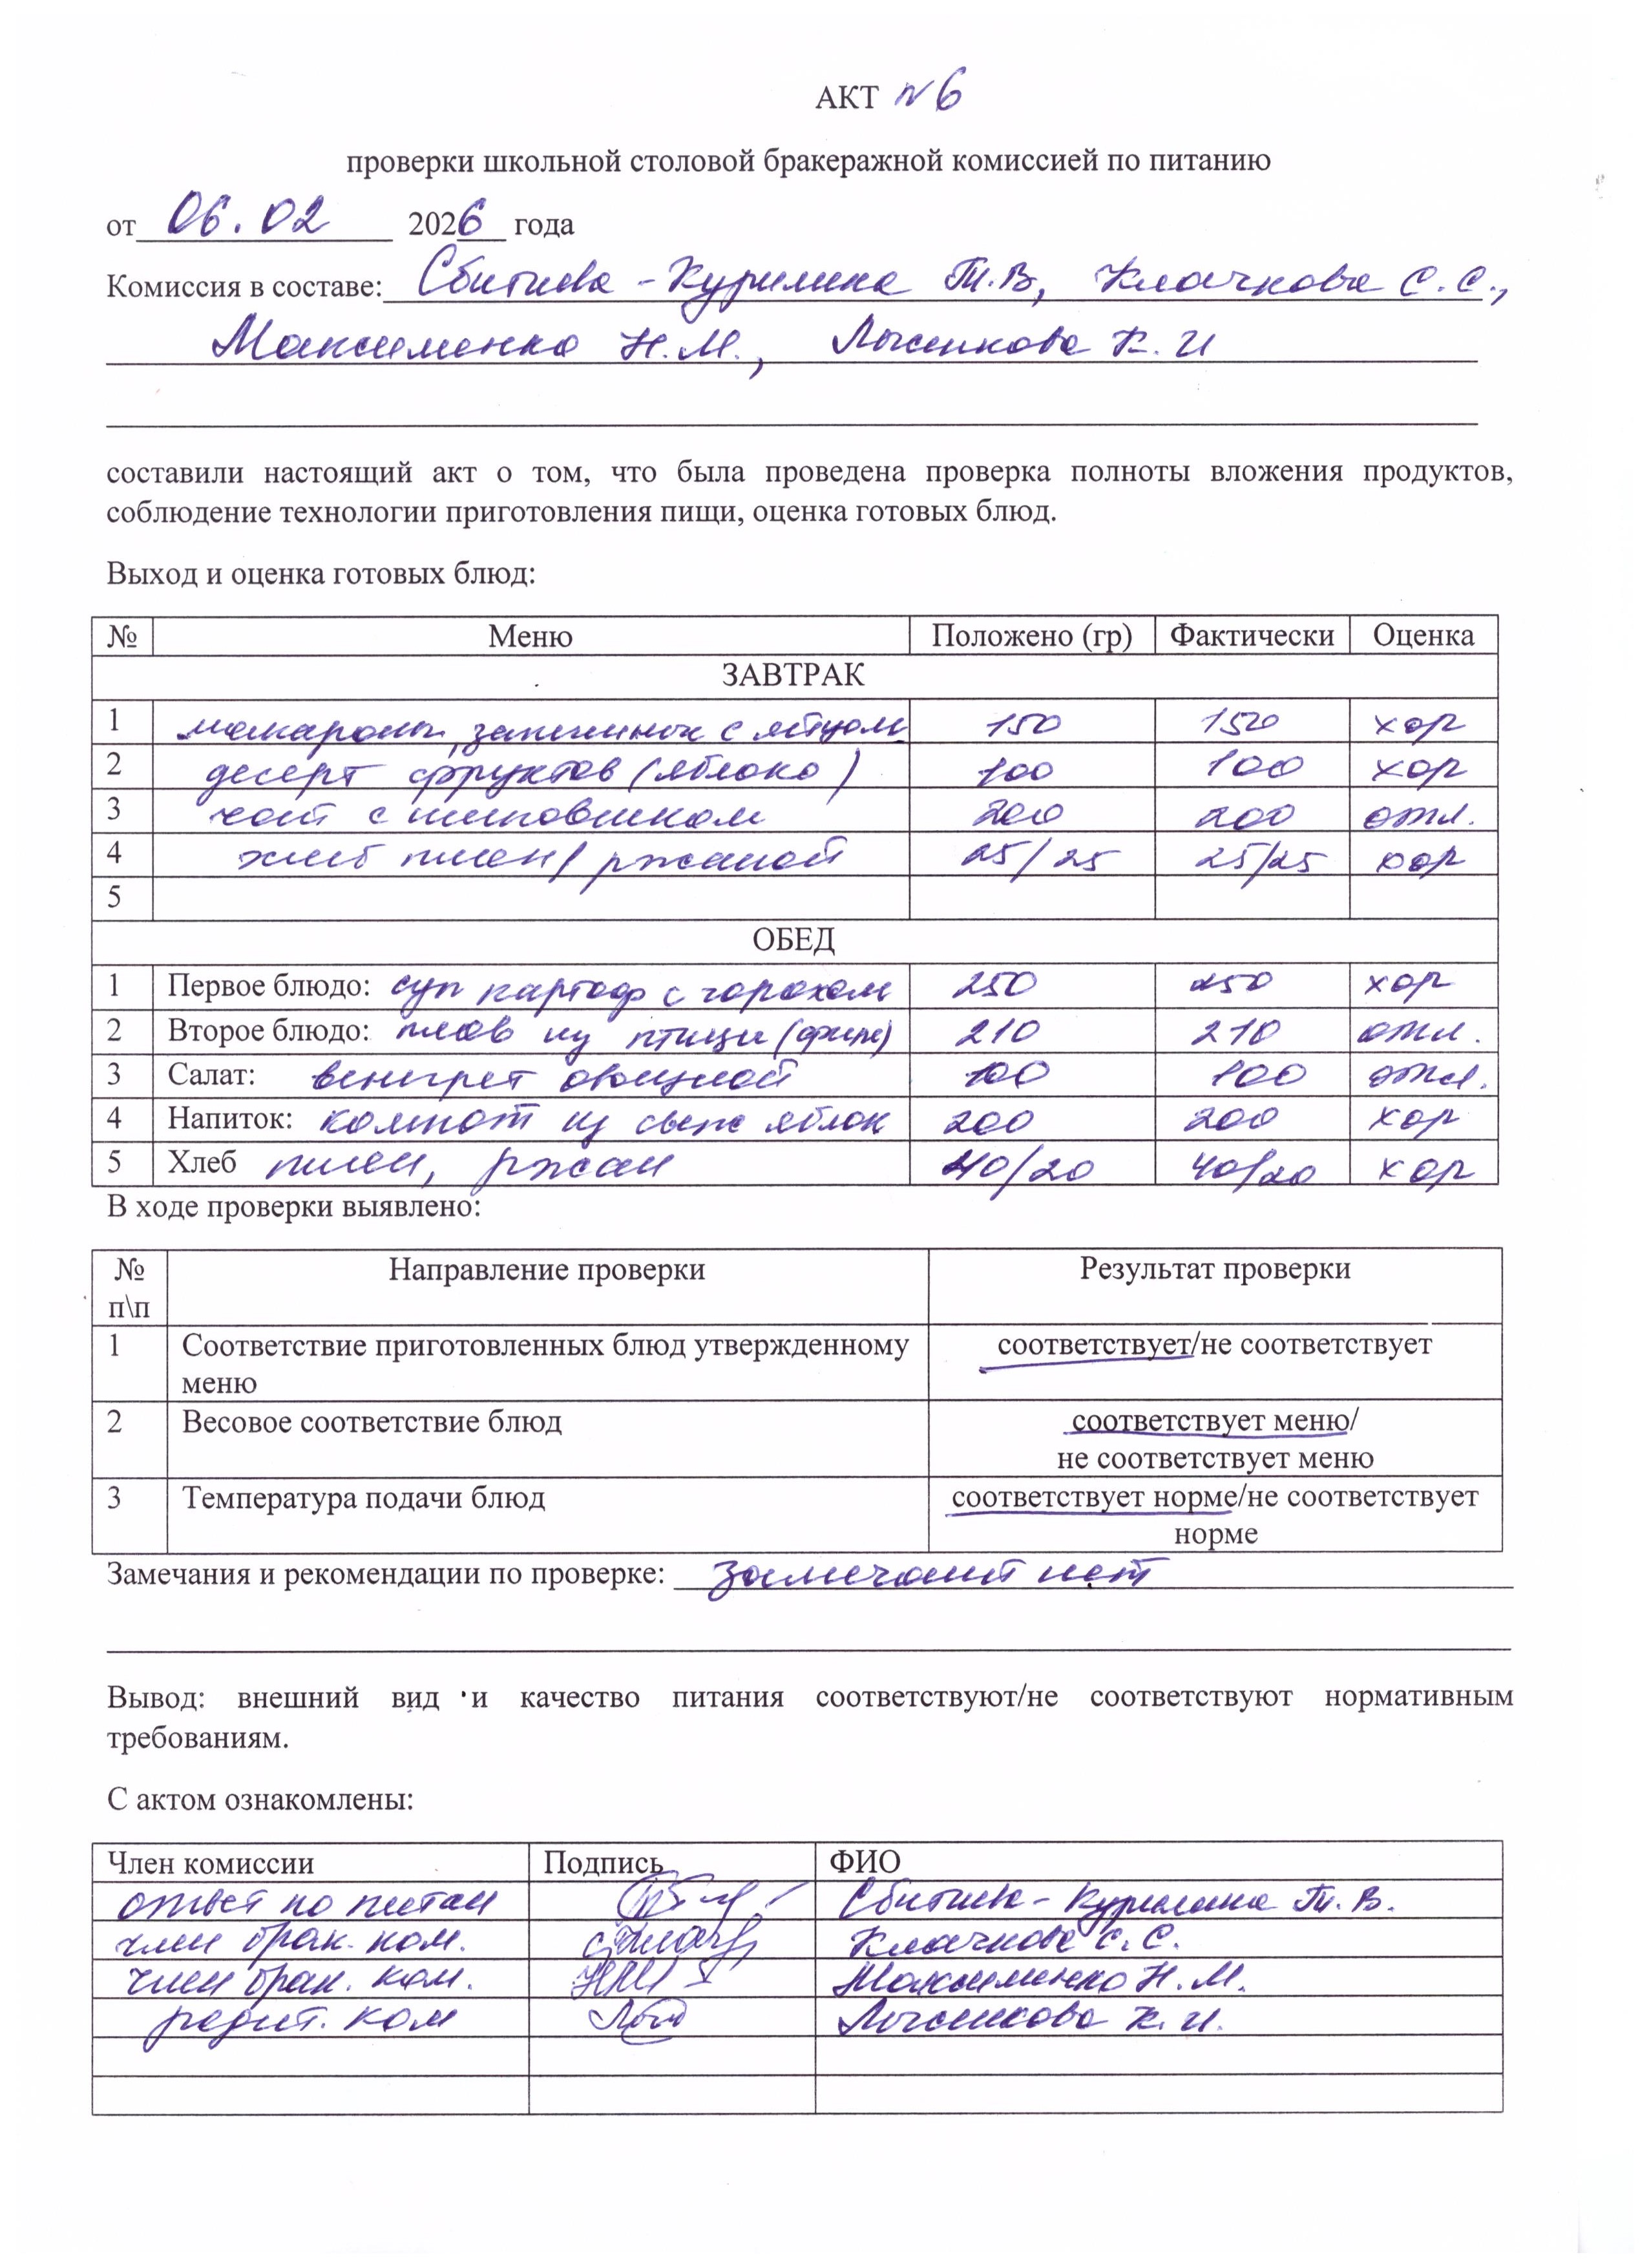 АКТ №6
проверки школьной столовой бракеражной комиссией по питанию
от 06.02 2026 года
Комиссия в составе: Сбитнева-Курилина Т.В, Клачкова С.С.,
Максименко Н.М., Лысикова К.И
составили настоящий акт о том, что была проведена проверка полноты вложения продуктов,
соблюдение технологии приготовления пищи, оценка готовых блюд.
Выход и оценка готовых блюд:
№ Меню Положено (гр) Фактически Оценка
ЗАВТРАК
1 макароны, запечиные с яйцом 150 150 хор
2 десерт фруктов (яблоко) 100 100 хор
3 чай с шиповником 200 200 отл.
4 хлеб пшен/ ржаной 25/25 25/25 хор
5
ОБЕД
1 Первое блюдо: суп картоф с горохом 250 250 хор
2 Второе блюдо: плов из птицы (филе) 210 210 отл.
3 Салат: венигрет овощной 100 100 отл.
4 Напиток: компот из свеж яблок 200 200 хор
5 Хлеб пшен, ржан 40/20 40/20 хор
В ходе проверки выявлено:
№ Направление проверки Результат проверки
п\п
1 Соответствие приготовленных блюд утвержденному соответствует/не соответствует
меню
2 Весовое соответствие блюд соответствует меню/
не соответствует меню
3 Температура подачи блюд соответствует норме/не соответствует
норме
Замечания и рекомендации по проверке: Замечаний нет
Вывод: внешний вид и качество питания соответствуют/не соответствуют нормативным
требованиям.
С актом ознакомлены:
Член комиссии Подпись ФИО
ответ по питан Сбитнев-Курилина Т.В.
член брак. ком. Клачкова С.С.
член брак. ком. Максименко Н.М.
родит. ком Лысикова К.И.